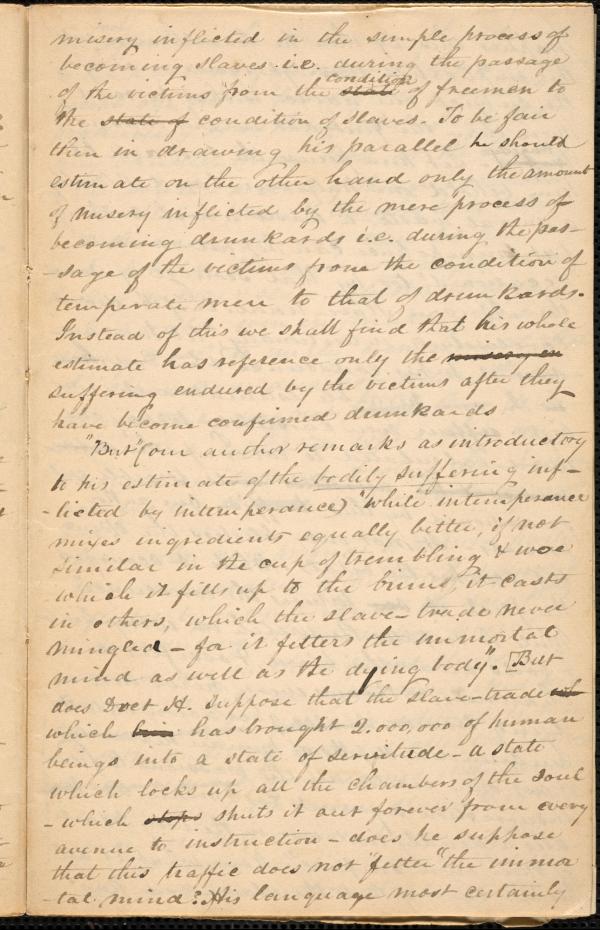 misery inflicted in the simple process of
becoming slaves i.e. during the passage
of the victims from the state condition of freemen to
the state of condition of slaves. To be fair
then in drawing his parallel he should
estimate on the other hand only the amount
of misery inflicted by the mere process of
becoming drunkards i.e. during the pas-
-sage of the victims from the condition of
temperate men to that of drunkards.
Instead of this we shall find that his whole
estimate has reference only the misery en
suffering endured by the victims after they
have become confirmed drunkards
"But" (our author remarks as introductory
to his estimate of the bodily suffering inf-
-licted by intemperance) "while intemperance
mixes ingredients equally bitter, if not
similar in the cup of trembling & woe
which it fills up to the brim, it casts
in others, which the slave-trade never
mingled - for it fetters the immortal
mind as well as the dying body". [But
does Doct H. suppose that the slave-trade
which has brought 2.000,000 of human
beings into a state of servitude - a state
which locks up all the chambers of the soul
- which stops shuts it out forever from every
avenue to instruction - does he suppose
that this traffic does not "fetter" the immor
-tal mind? His language most certainly